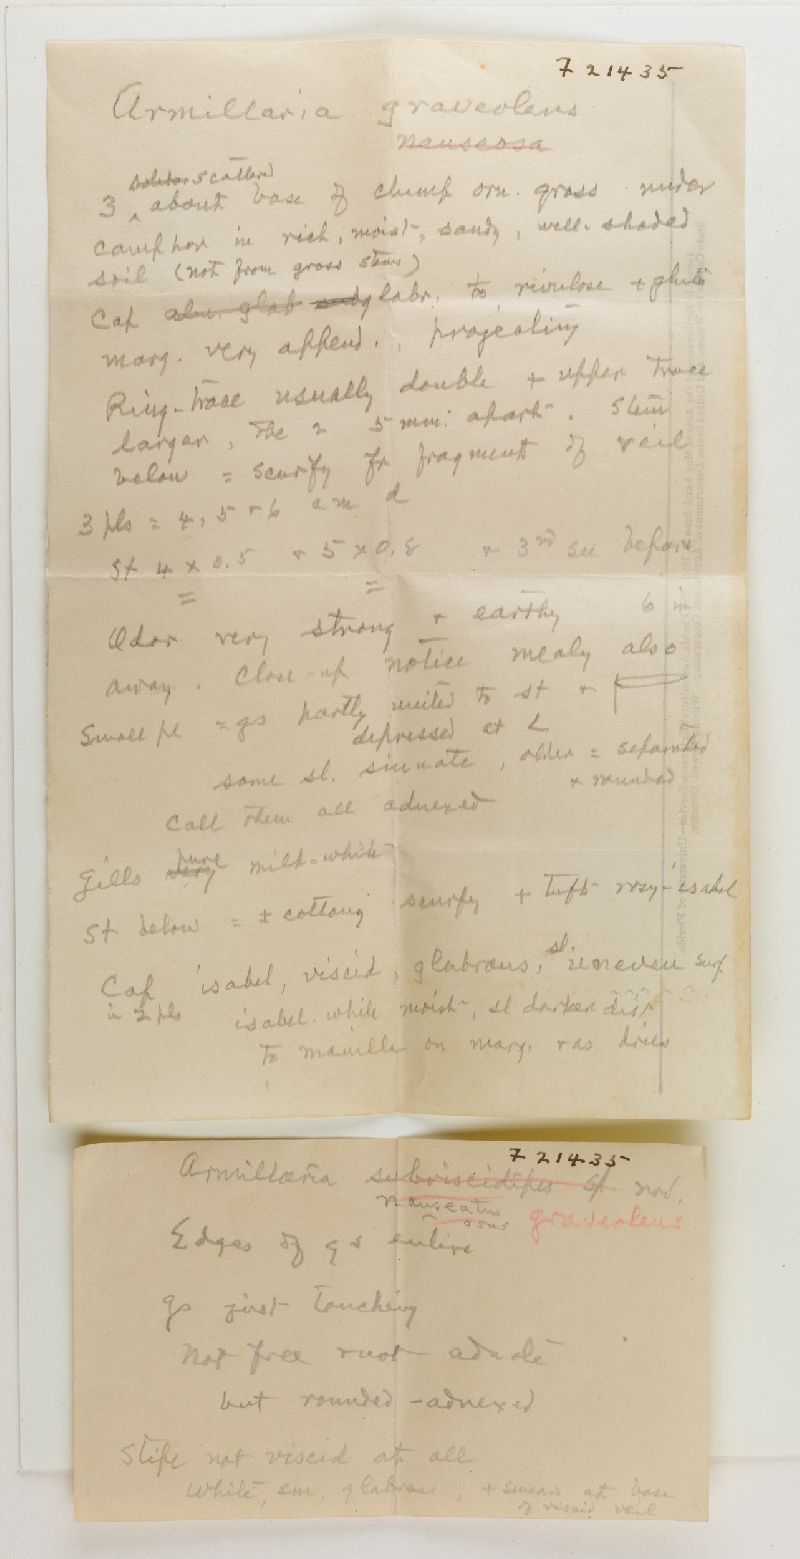 7 21435
Armillaria graveolens
nauseosa
scattered
3 ^ about base of clump orn. grass under
camphor in rich, moist, sandy, well-shaded
soil (not from grass stems)
Cap glab glabr. to rivulose + glut
marg. very append., projecting
Ring-trace usually double + upper trace
larger, the 2 5 mm. apart. Stem
below = scurfy fr fragments of veil
3 pls = 4, 5 + 6 cm d
St 4 x 0.5 + 5 x 0.8 + 3rd see before
Odor very strong + earthy 6 in
away. Close-up notice mealy also
Small pl = gs partly united to st +
depressed at L
some sl. sinuate, older = separated
+ rounded
Call them all adnexed
pure
Gills very milk-white
St below = ± cottony scurfy + tufts rosy-isabel
Cap isabel, viscid, glabrous, sl. uneven surf
in 2 pls isabel. while moist, sl darker disk
to manilla on marg. + as dries
7 21435
Armillaria subviscidipes sp. nov.
nauseatus
osus graveolens
Edges of gs entire
gs just touching
not free + not adnate
but rounded-adnexed
Stipe not viscid at all
White, sm, glabrous, + smears at base
of viscid veil